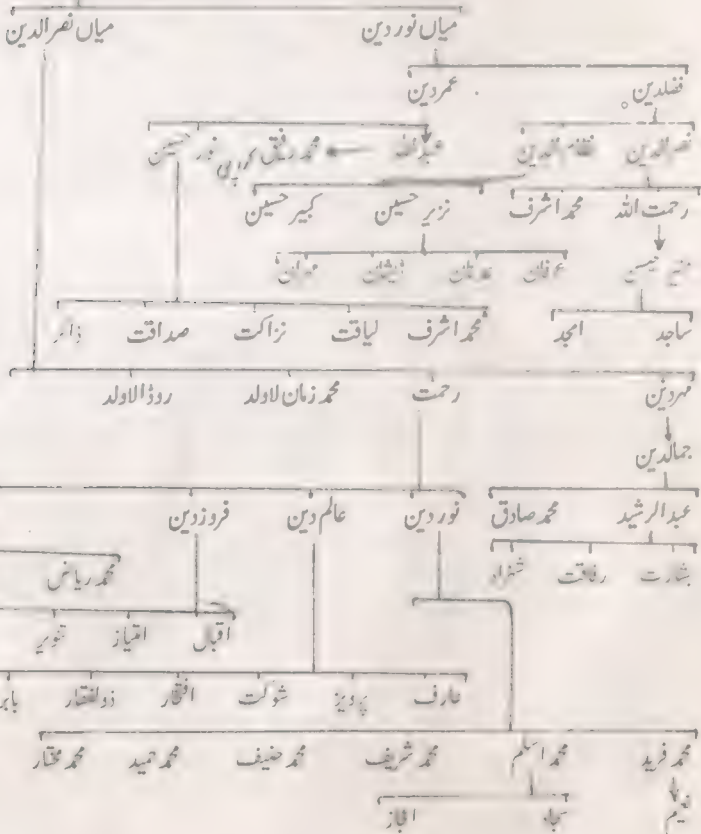 میاں نور دین میاں نصر الدین
فضلدین عمر دین
نصر الدین نظام الدین عبداللہ محمد رفیق کراچی نور حسین
رحمت اللہ محمد اشرف نزیر حسین کبیر حسین
حسین عرفان عدنان ذیشان
ساجد امجد محمد اشرف لیاقت نزاکت صداقت
مہردین رحمت محمد زمان لاولد روڈا لاولد
جمالدین
عبدالرشید محمد صادق نور دین عالم دین فروز دین
بشارت رفاقت شہزاد محمد ریاض
اقبال امتیاز تنویر
عارف پرویز شوکت افتخار ذوالفقار بابر
محمد فرید محمد اسلم محمد شریف محمد حنیف محمد حمید محمد مختار
نعیم سجاد اعجاز